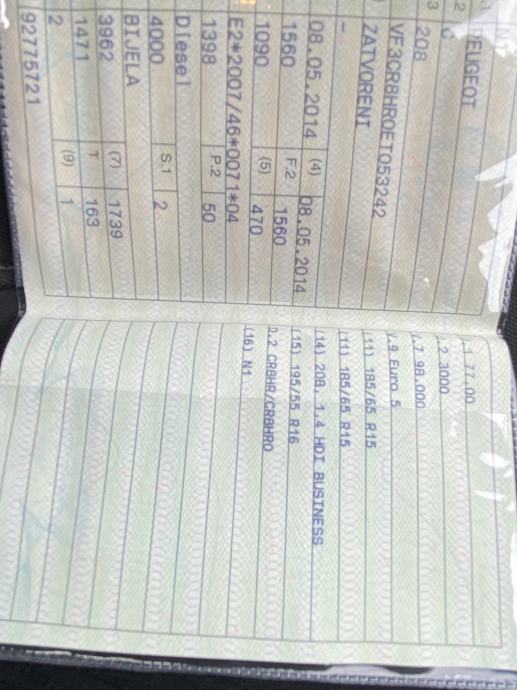 N1
.2 PEUGEOT
C
3 208
VF3CR8HR0ET053242
ZATVORENI
-
08.05.2014 (4) 08.05.2014
1560 F.2 1560
1090 (5) 470
E2*2007/46*0071*04
1398 P.2 50
Diesel
4000 S.1 2
BIJELA
3962 (7) 1739
1471 T 163
2 (9) 1
92775721
.1 77.00
.2 3000
.7 98.000
V.9 Euro 5
(11) 185/65 R15
(11) 185/65 R15
(14) 208, 1.4 HDI BUSINESS
(15) 195/55 R16
D.2 CR8HR/CR8HR0
(16) N1